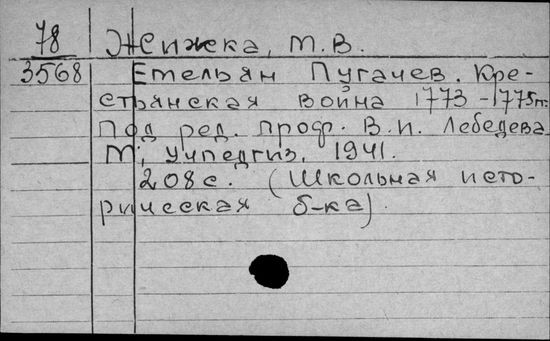 78 Жижка, М.В.
3568 Емельян Пугачев. Кре-
стьянская война 1773-1775гг.
Под ред. проф. В.И. Лебедева
М., Учпедгиз, 1941.
208с. (Школьная исто-
рическая б-ка).